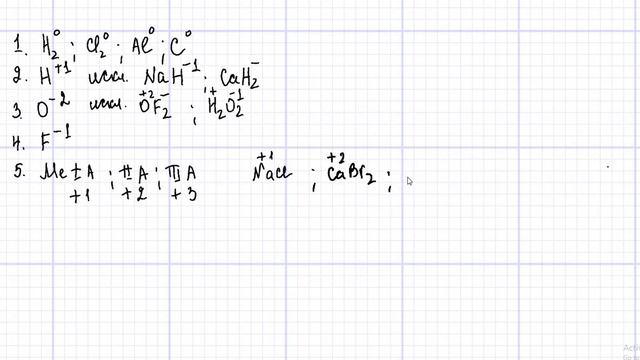 1. H₂⁰ ; Cl₂⁰ ; Al⁰ ; C⁰
2. H⁺¹ искл. NaH⁻¹ ; CaH₂⁻
3. O⁻² искл. O⁺²F₂⁻ ; H₂⁺O₂⁻¹
4. F⁻¹
5. Me IA ; IIA ; IIIA Na⁺¹Cl ; Ca⁺²Br₂ ;
+1 +2 +3